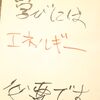 学びには
エネルギー
必要です